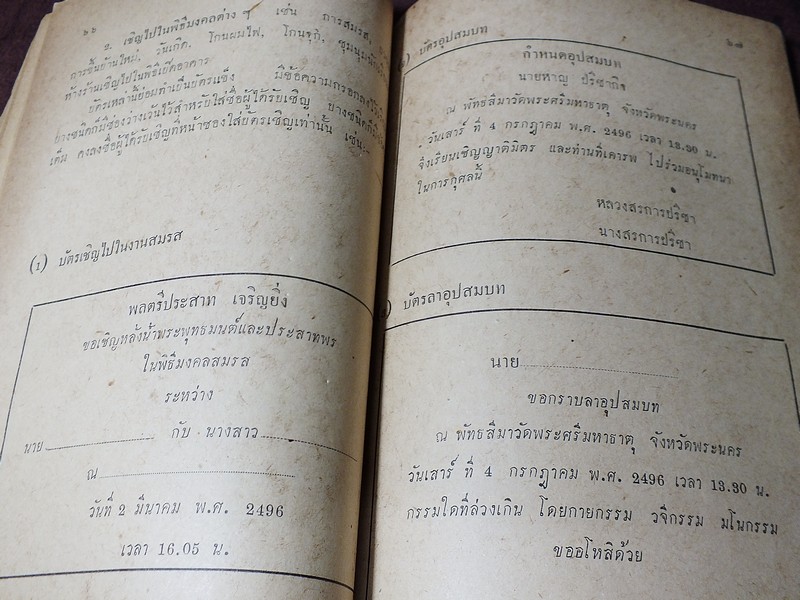 ๖๖
2. เชิญไปในพิธีมงคลต่าง ๆ เช่น การสมรส,
การขึ้นบ้านใหม่, วันเกิด, โกนผมไฟ, โกนจุก, ชุมนุม
ห้างร้านเชิญไปในพิธีเปิดอาคาร
บัตรเหล่านี้ย่อมทำเป็นบัตรแข็ง มีข้อความกรอกลงไว้
บางชนิดก็มีช่องว่างเว้นไว้สำหรับใส่ชื่อผู้ได้รับเชิญ บางชนิดก็
เต็ม คงลงชื่อผู้ได้รับเชิญที่หน้าซองใส่บัตรเชิญเท่านั้น เช่น:-
(1) บัตรเชิญไปในงานสมรส
พลตรีประสาท เจริญยิ่ง
ขอเชิญหลั่งน้ำพระพุทธมนต์และประสาทพร
ในพิธีมงคลสมรส
ระหว่าง
นาย กับ นางสาว
ณ
วันที่ 2 มีนาคม พ.ศ. 2496
เวลา 16.05 น.
๖๗
บัตรอุปสมบท
กำหนดอุปสมบท
นายหาญ ปรีชาถิ่ง
ณ พัทธสีมาวัดพระศรีมหาธาตุ จังหวัดพระนคร
วันเสาร์ ที่ 4 กรกฎาคม พ.ศ. 2496 เวลา 13.30 น.
จึงเรียนเชิญญาติมิตร และท่านที่เคารพ ไปร่วมอนุโมทนา
ในการกุศลนี้
หลวงสรการปรีชา
นางสรการปรีชา
บัตรลาอุปสมบท
นาย
ขอกราบลาอุปสมบท
ณ พัทธสีมาวัดพระศรีมหาธาตุ จังหวัดพระนคร
วันเสาร์ ที่ 4 กรกฎาคม พ.ศ. 2496 เวลา 13.30 น.
กรรมใดที่ล่วงเกิน โดยกายกรรม วจีกรรม มโนกรรม
ขออโหสิด้วย